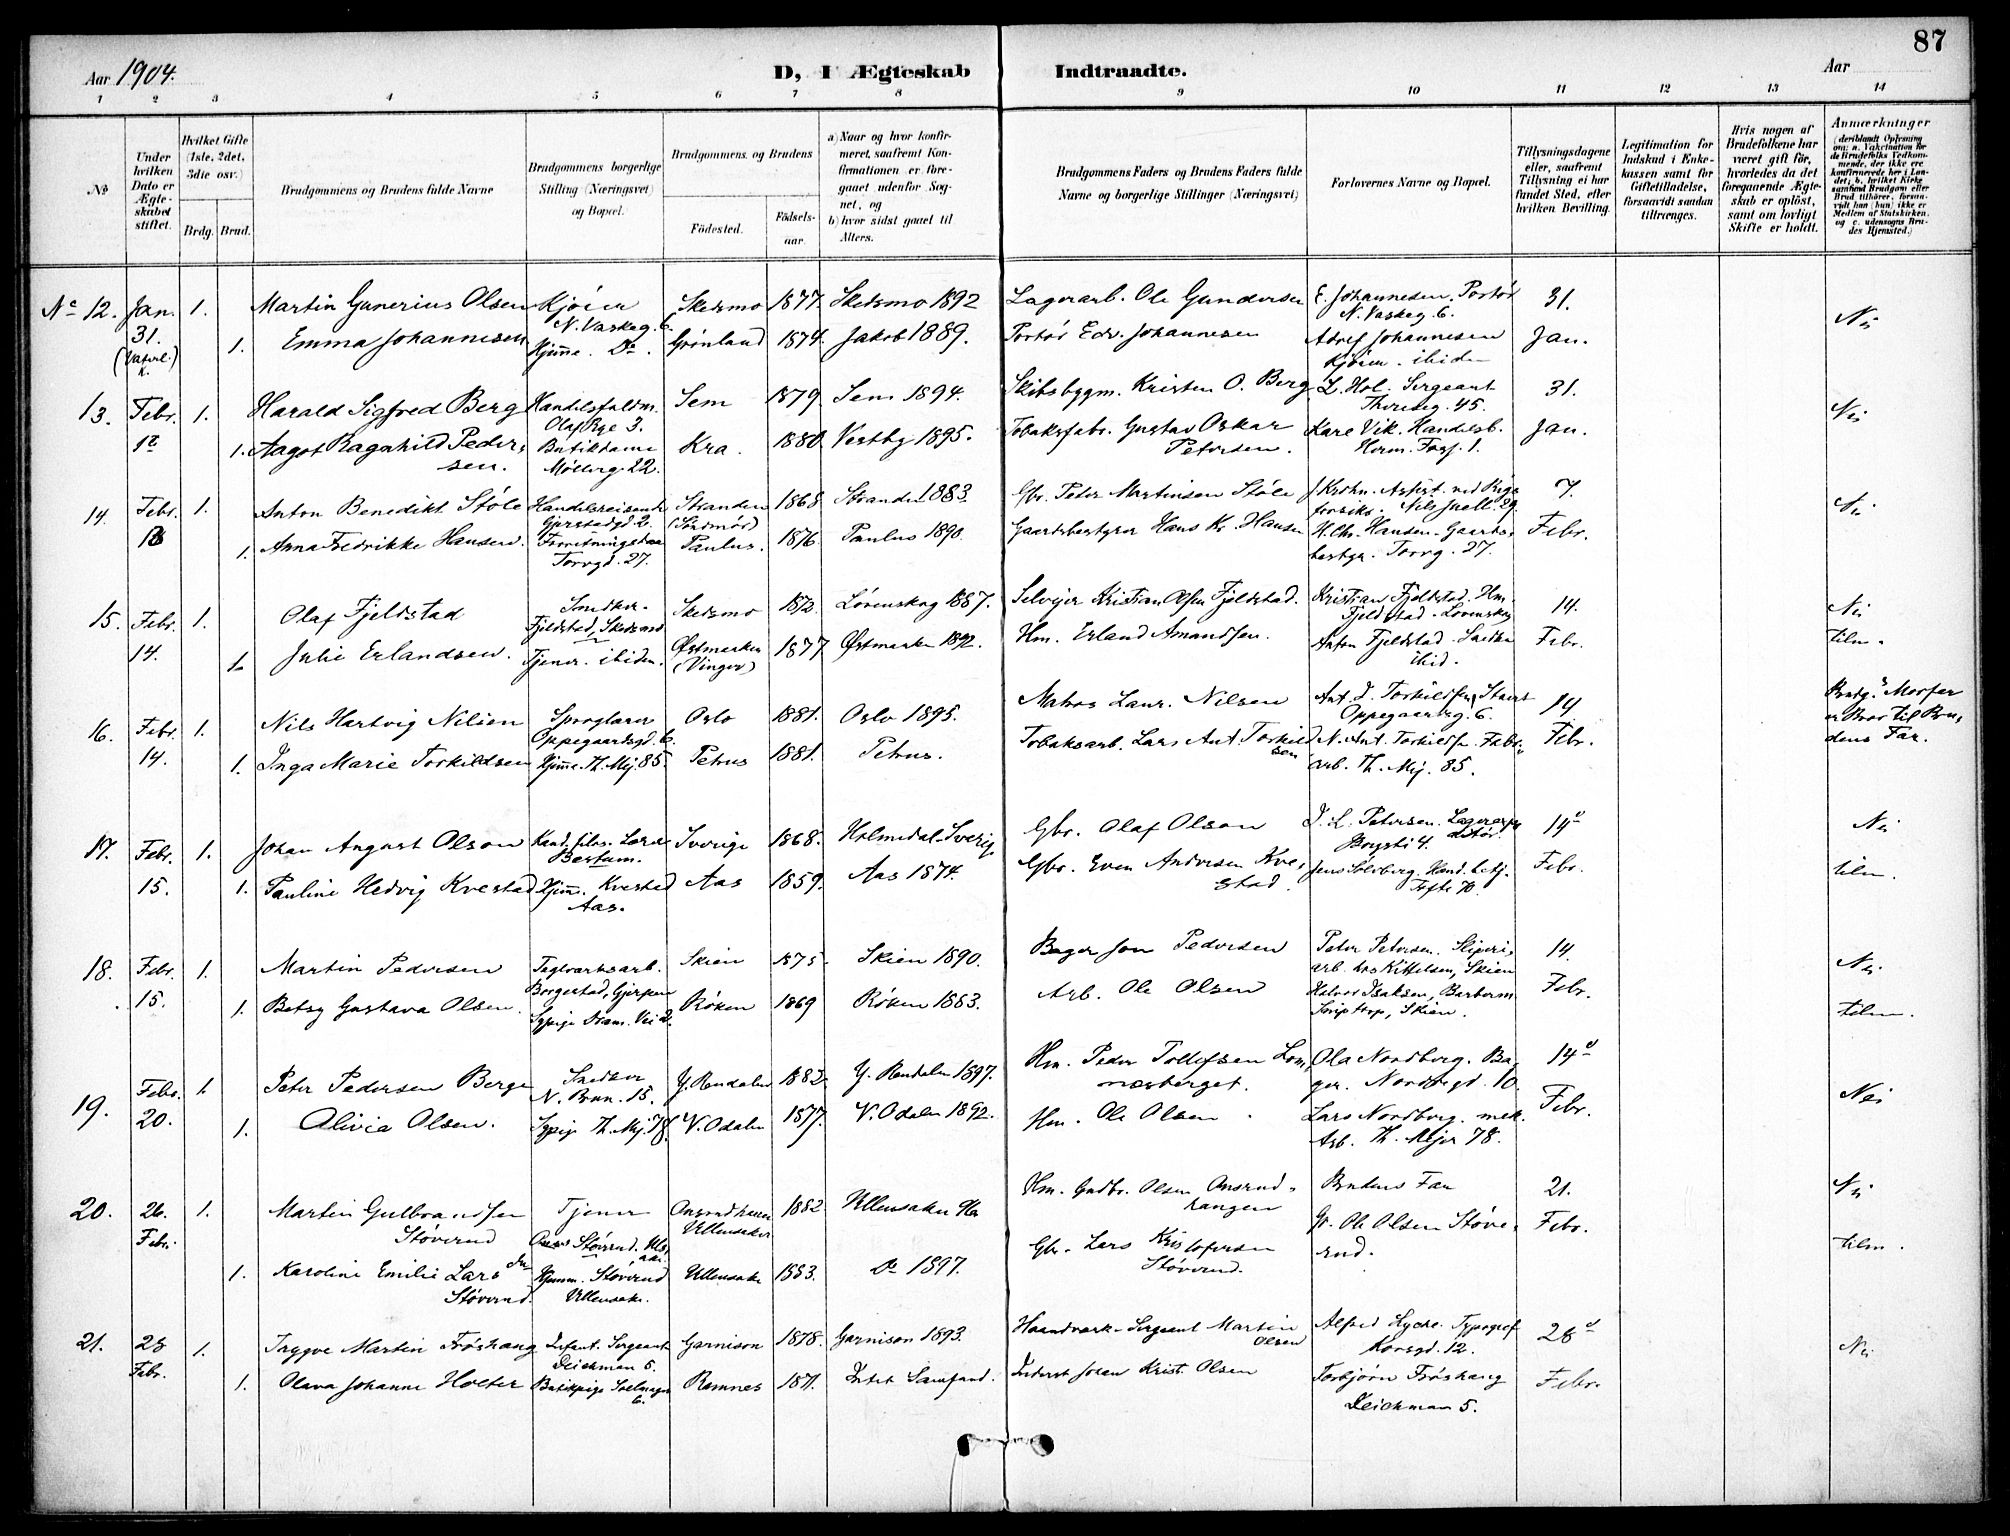 87
Aar 1904.
D, I Ægteskab Indtraadte.
Aar
1 2 3 4 5 6 7 8 9 10 11 12 13 14
No
Under hvilken Dato er Ægteskabet stiftet.
Hvilket Gifte (1ste, 2det, 3die osv.)
Brdg. Brud.
Brudgommens og Brudens fulde Navne
Brudgommens borgerlige Stilling (Næringsvei) og Bopæl.
Brudgommens og Brudens
Födested.
Födselsaar.
a) Naar og hvor konfirmeret, saafremt Konfirmationen er foregaaet udenfor Sognet, og
b) hvor sidst gaaet til Alters.
Brudgommens Faders og Brudens Faders fulde Navne og borgerlige Stillinger (Næringsvei)
Forlovernes Navne og Bopæl.
Tillysningsdagene eller, saafremt Tillysning ei har fundet Sted, efter hvilken Bevilling.
Legitimation for Indskud i Enkekassen samt for Giftetilladelse, forsaavidt saadan tiltrænges.
Hvis nogen af Brudefolkene har været gift för, hvorledes da det foregaaende Ægteskab er oplöst, samt om lovligt Skifte er holdt.
Anmærkninger (deriblandt Oplysning om: a. Vakcination for de Brudefolks Vedkommende, der ikke ere konfirmerede her i Landet; b. hvilket Kirkesamfund Brudgom eller Brud tilhører, forsaavidt han (hun) ikke er Medlem af Statskirken. og c. udensogns Brudes Hjemsted.)
No 12. Jan. 1. Martin Gunerius Olsen Kjøier Skedsmo 1877. Skedsmo 1892 Lagerarb. Ole Gundersen E. Johannesen. Portør 31. Nei
31. N. Vaskeg. 6. N. Vaskeg. 6.
(Vaterl. K.) 1. Emma Johannesen Hjemme. Do. Grønland 1874. Jakob 1889. Portør Edv. Johannesen Adolf Johannesen Jan.
Kjøier. ibiden
13. Febr. 1. Harald Sigfred Berg Handelsfuldm. Sem 1879. Sem 1894. Skibsbygm. Kristen O. Berg L. Hol. Sergeant 31. Nei
Olaf Rye 3. Thereseg. 45.
1. Aagot Ragnhild Pedersen. Butikdame Kra. 1880. Vestby 1895. Tobaksfabr. Gustav Oskar Petersen. Kare Vik. Handelsb. Jan.
Møllerg. 22. Herm. Foss. 1.
14. Febr. 1. Anton Benedikt Støle Handelsreisende Stranden 1868. Stranden 1883. Gbr. Peter Martinsen Støle 7. Nei
Gjerstadgd. 2. (Søndmør)
1. Anna Fredrikke Hansen. Paulus. 1876. Paulus 1890. Gaardsbestyrer Hans Kr. Hansen H. Chr. Hansen. Gaardsbestyr. Torvg. 27. Febr.
Torvgd. 27.
15. Febr. 1. Olaf Fjeldstad Snedker. Skedsmo 1872. Lørenskog 1887. Selveier Kristian Olsen Fjeldstad. Kristian Fjeldstad. Hm. 14. Nei
Fjeldstad, Skedsmo Fjeldstad. Lørenskog
14. 1. Julie Erlandsen. Tjener. ibiden. Østmarken (Vinger) 1877 Østmarken 1892. Hm. Erland Amandsen. Anton Fjeldstad. Snedker ibid. Febr. tilm.
16. Febr. 1. Nils Hartvig Nilsen Sporglarer Oslo 1881. Oslo 1895. Matros Laur. Nilsen Ant. I. Torkildsen, 14 Brudg.s Morfar
Oppegaardsgd. 6. Oppegaardsg. 6. er Bror til Bru-
14. 1. Inga Marie Torkildsen Hjemme. Th. Mej. 85. Petrus 1881. Petrus. Tobaksarb. Lars Ant. Torkildsen N. Ant. Torkildsen. Fabr. arb. Th. Mej. 85. Febr. dens Far.
17. Febr. 1. Johan August Olsson Kand. filos. Lærer Sverige 1868. Holmedal. Sverige Gbr. Olaf Olsson I. L. Petersen. Lagerexpeditør. 14d Nei
Bestum. Borgsti 4.
15. 1. Pauline Hedvig Kvestad Hjemm. Kvestad Aas 1859. Aas 1874. Gbr. Even Andersen Kvestad. Jens Solberg. Hand. betj. Febr. tilm.
Aas. Tofte 70.
18. Febr. 1. Martin Pedersen Teglværksarb. Skien 1875. Skien 1890. Bager Jon Pedersen Peter Petersen. Sliperiarb. hos Kittelsen, Skien 14. Nei
Borgestad, Gjerpen
15. 1. Betsy Gustava Olsen. Sypige Dram. Vei 2. Røken 1869 Røken 1883. Arb. Ole Olsen Halvor Isaksen, Barberm. Febr. tilm.
Sniptorp, Skien.
19. Febr. 1. Peter Pedersen Berge Snedker Y. Rendalen 1882. Y. Rendalen 1897. Hm. Peder Tollefsen Lomnæsberget. Ola Nordberg. Bager. Nordbygd. 10. 14d Nei
N. Brun. 15.
20. 1. Alivia Olsen. Sypige Th. Mej. 78. V. Odalen 1877. V. Odalen 1892. Hm. Ole Olsen Lars Nordberg. mek. Arb. Th. Mejer 78. Febr.
20. 26. 1. Martin Gulbrandsen Støverud Tjener Ullensaker 1882 Ullensaker Hm. Gudbr. Olsen Brudens Far 21. Nei
Febr. Støverud. Ullensaker
1. Karoline Emilie Larsdr Støverud. Hjemm. Støverud Ullensaker 1883. Do 1897. Gbr. Lars Kristofersen Støverud. Ole Olsen Støverud. Febr. tilm.
Ullensaker.
21. 28 1. Trygve Martin Frøshaug Infant. Sergeant Garnison 1878. Garnison 1893. Haandværk-Sergeant Martin Olsen Alfred Lyche. Typograf 28d Nei
Febr. Deichman 5. Korsgd. 12.
1. Olava Johanne Holter Butikpige 6. Ramnes 1871. Intet Samfund. Johan Krist. Olsen Torbjørn Frøshaug Febr.
Deichman 5.